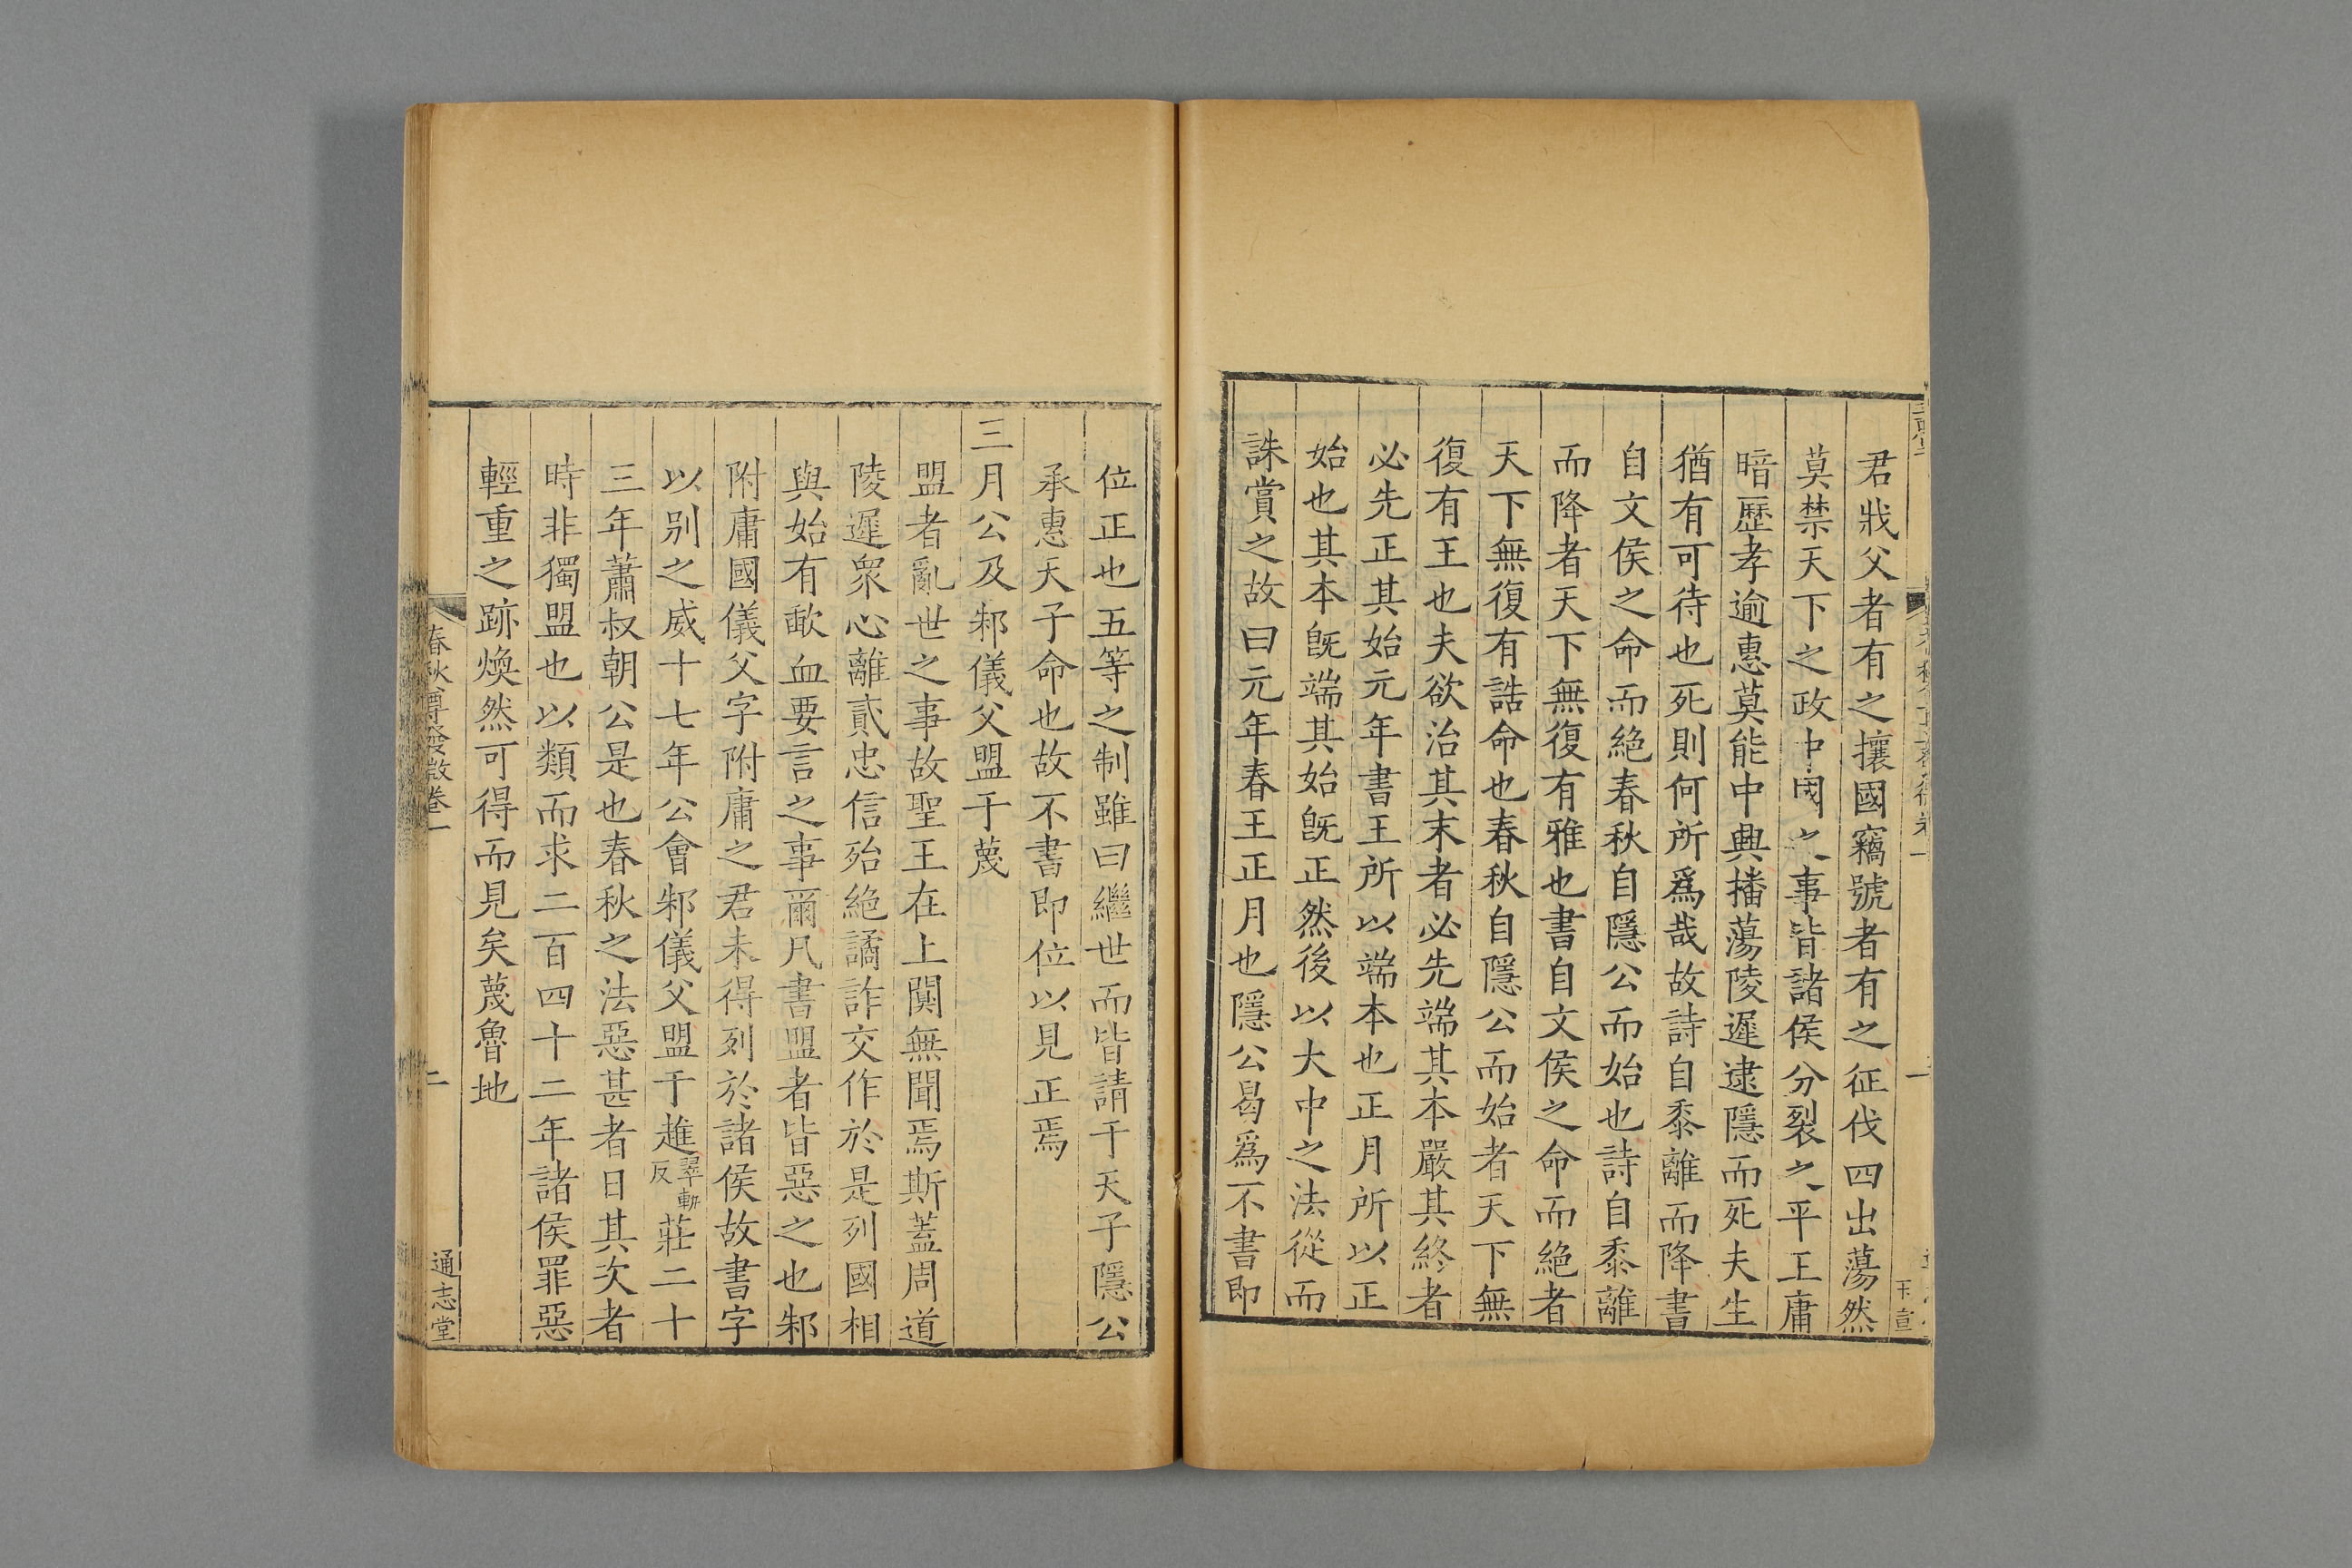 君戕父者有之攘國竊號者有之征伐四出蕩然
莫禁天下之政中國之事皆諸侯分裂之平王庸
暗歷孝逾惠莫能中興播蕩陵遲逮隱而死夫生
猶有可待也死則何所爲哉故詩自黍離而降書
自文侯之命而絕春秋自隱公而始也詩自黍離
而降者天下無復有雅也書自文侯之命而絕者
天下無復有誥命也春秋自隱公而始者天下無
復有王也夫欲治其末者必先端其本嚴其終者
必先正其始元年書王所以端本也正月所以正
始也其本旣端其始旣正然後以大中之法從而
誅賞之故曰元年春王正月也隱公曷爲不書即
位正也五等之制雖曰繼世而皆請于天子隱公
承惠天子命也故不書即位以見正焉
三月公及邾儀父盟于蔑
盟者亂世之事故聖王在上闃無聞焉斯蓋周道
陵遲衆心離貳忠信殆絕譎詐交作於是列國相
與始有歃血要言之事爾凡書盟者皆惡之也邾
附庸國儀父字附庸之君未得列於諸侯故書字
以别之威十七年公會邾儀父盟于趡翠軌反莊二十
三年蕭叔朝公是也春秋之法惡甚者日其次者
時非獨盟也以類而求二百四十二年諸侯罪惡
輕重之跡煥然可得而見矣蔑魯地
春秋尊發微卷一
二
通志堂